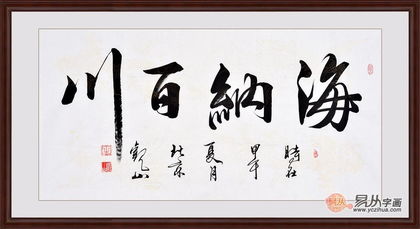 海納百川
時在
甲午
夏月
北京
觀山
易从字画
www.yczihua.com